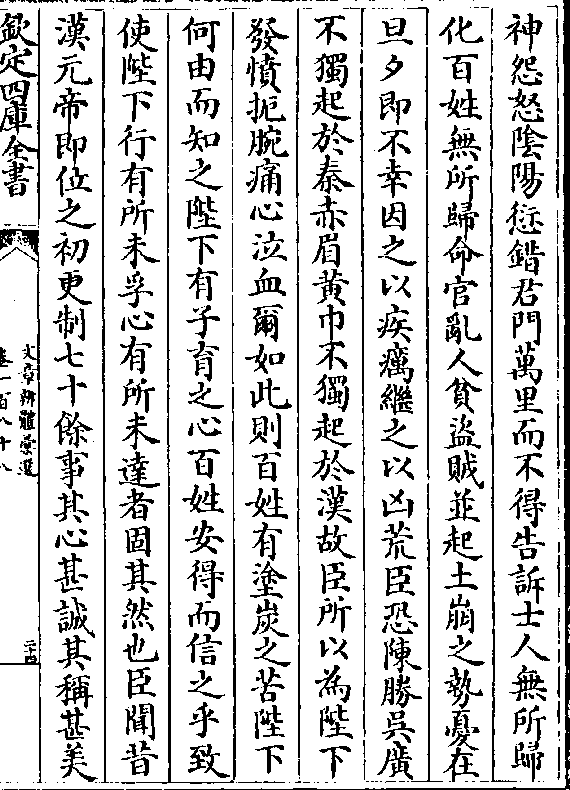 神怨怒陰陽愆錯君門萬里而不得告訴士人無所歸
化百姓無所歸命官亂人貧盜賊並起土崩之勢憂在
旦夕即不幸因之以疾癘繼之以凶荒臣恐陳勝吳廣
不獨起於秦赤眉黃巾不獨起於漢故臣所以為陛下
發憤扼腕痛心泣血爾如此則百姓有塗炭之苦陛下
何由而知之陛下有子育之心百姓安得而信之乎致
使陛下行有所未孚心有所未達者固其然也臣聞昔
漢元帝即位之初更制七十餘事其心甚誠其稱甚美
欽定四庫全書
文章辨體彙選
卷一百八十八
二十四